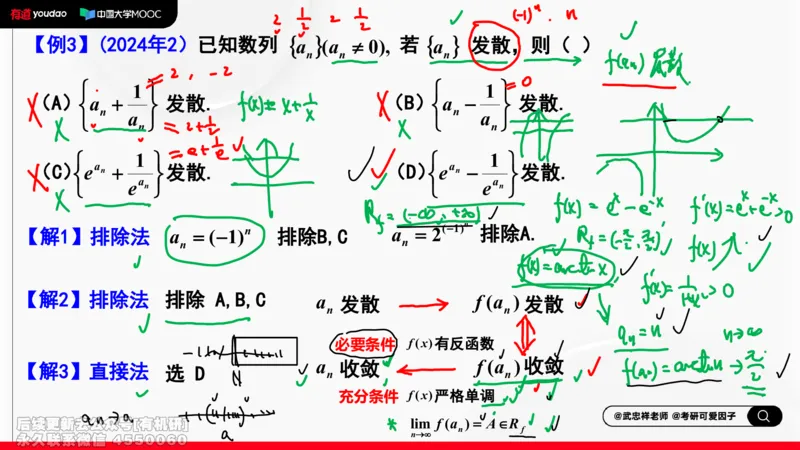 有道 youdao 中国大学MOOC
2 1/2 2 1/2 (-1)^n · n
【例3】(2024年2) 已知数列 {a_n}(a_n ≠ 0), 若 {a_n} 发散, 则（ ）
f(a_n) 发散
=2, -2 =0
X (A) {a_n + 1/a_n} 发散. f(x)= x+1/x X (B) {a_n - 1/a_n} 发散.
X =2+1/2 X
=e+1/e
X (C) {e^{a_n} + 1/e^{a_n}} 发散. (D) {e^{a_n} - 1/e^{a_n}} 发散.
X R_f=(-∞, +∞) f(x) = e^x - e^{-x} f'(x)=e^x+e^{-x}>0
【解1】排除法 a_n = (-1)^n 排除B,C a_n = 2^{(-1)^n} 排除A.
R_f=(-π/2, π/2) f(x)↗
f(x)=arctan x f'(x)=1/(1+x²)>0
【解2】排除法 排除 A,B,C a_n 发散 → f(a_n) 发散
a_n=n n→∞
必要条件 f(x) 有反函数
【解3】直接法 选 D N a_n 收敛 ← f(a_n) 收敛 f(a_n)=arctan n → π/2
充分条件 f(x) 严格单调
a_n→a a * lim_{n→∞} f(a_n) = A ∈ R_f
@武忠祥老师 @考研可爱因子
后续更新关公众号[有机研]
永久联系微信 4550060